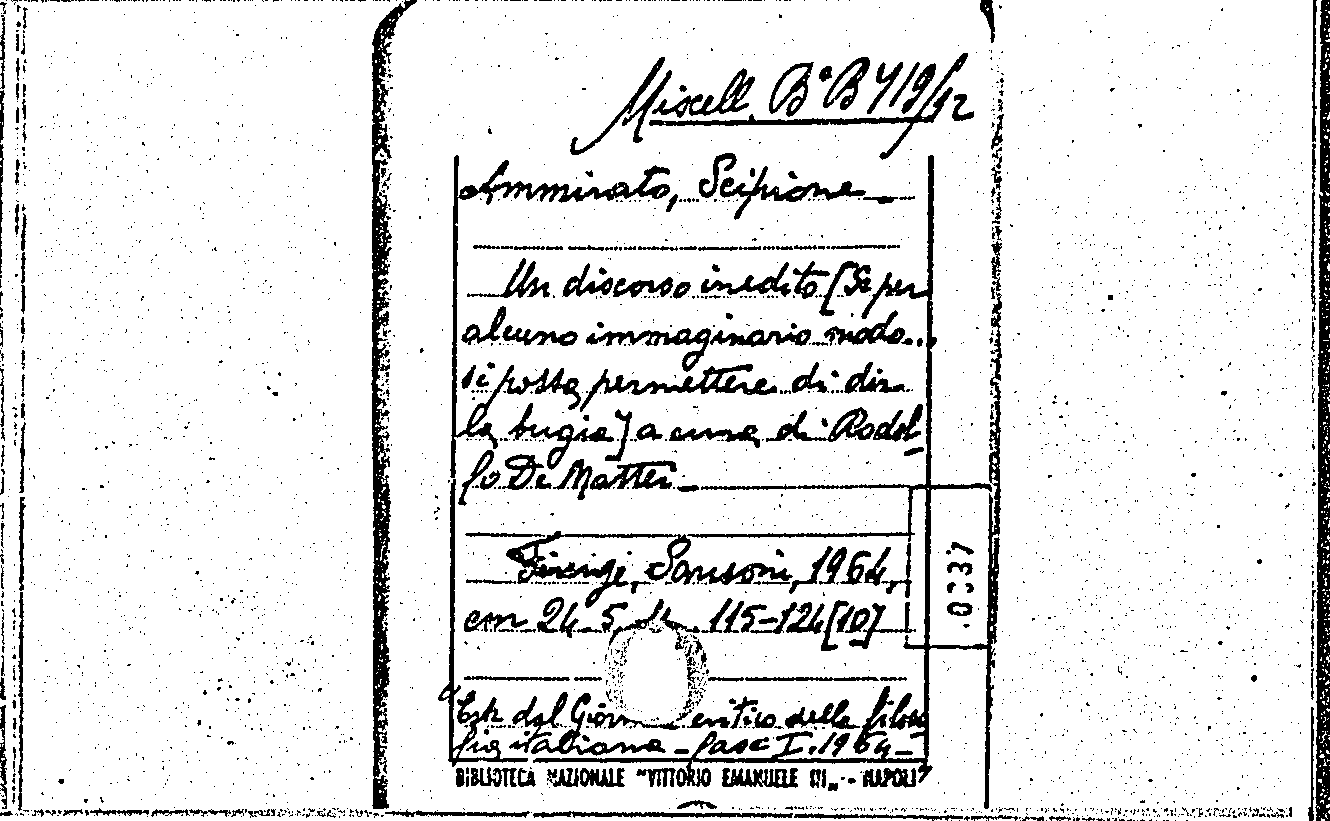 Miscell. B.a B 719/12
Ammirato, Scipione
Un discorso inedito [Se per
alcuno immaginario modo...
si possa permettere di dir
la bugia] a cura di Rodol-
fo De Mattei
Firenze, Sansoni, 1964,
cm 24,5, 115-124 [10]
0337
"Estr. dal Giorn critico della filoso
fia italiana - fasc I. 1964 -"
BIBLIOTECA NAZIONALE "VITTORIO EMANUELE III" - NAPOLI